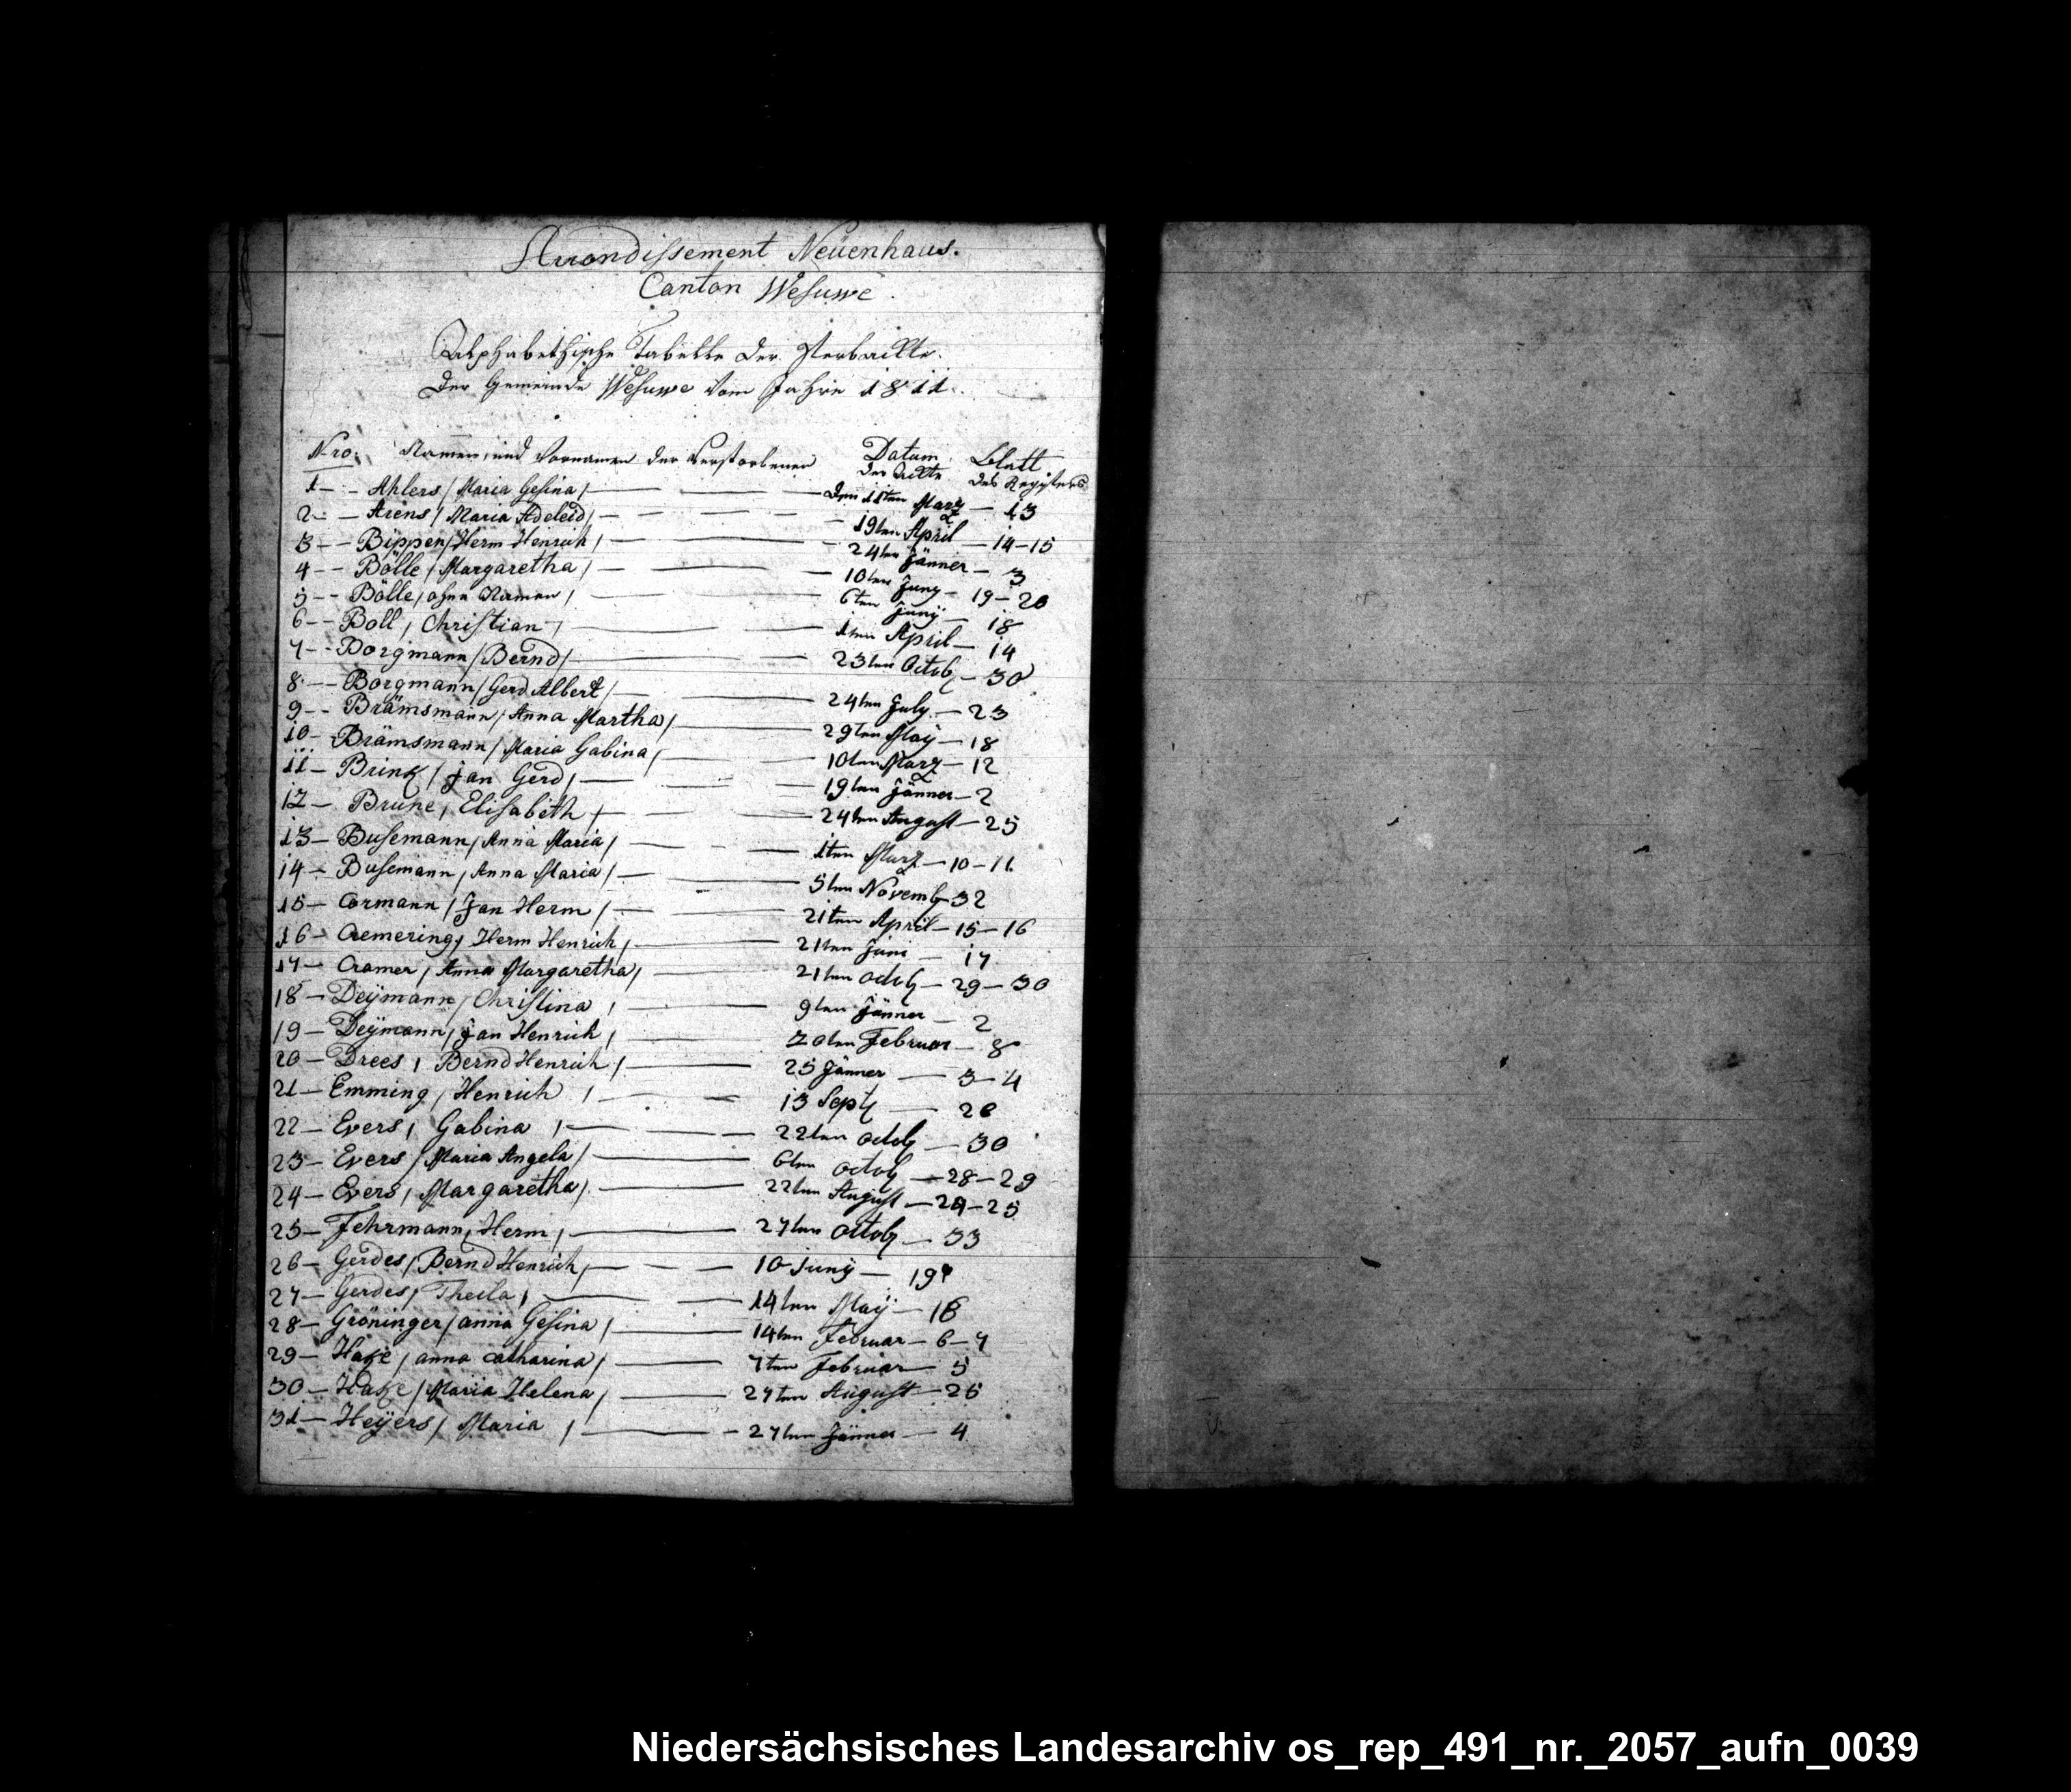 Arrondissement Neuenhaus.
Canton Wesuwe.
Alphabethische Tabelle der Sterbackte.
der Gemeinde Wesuwe vom Jahre 1811.
Nro. Namen, und Vornamen der Verstorbenen Datum der Ackte Blatt des Registers
1 – - Ahlers / Maria Gesina / — — — den 11ten Marz — 13
2 – — Arens / Maria Adeleid / — — — 19ten April — 14-15
3 – – Bippen / Herm Heinrich / — — — 24ten Jänner — 3
4 – - Bölle / Margaretha / — — — 10ten Juny — 19-20
5 – - Bölle / ohne Namen / — — 6ten Junÿ — 18
6 – - Boll / Christian / — — 1ten April — 14
7 – - Borgmann / Bernd / — — 23ten Octob — 30
8 – — Borgmann / Gerd Albert / — — 24ten July — 23
9 – - Brämsmann / Anna Martha / — 29ten Maÿ — 18
10 - Brämsmann / Maria Gabina / — 10ten Marz — 12
11 – Brink / Jan Gerd / — — — 19ten Jänner — 2
12 – Brune / Elisabeth / — — — 24ten August — 25
13 – Busemann / Anna Maria / — — — 1ten Marz — 10-11
14 – Busemann / Anna Maria / — — 5ten Novemb — 32
15 – Cormann / Jan Herm / — — 21ten April — 15-16
16 – Cremering / Herm Henrich / — — 21ten Juni — 17
17 – Cramer / Anna Margaretha / — — 21ten octob — 29-30
18 – Deÿmann / Christina / — — 9ten Jänner — 2
19 – Deÿmann / Jan Henrich / — — 20ten Februar — 8
20 – Drees / Bernd Henrich / — — 25 Jänner — 3-4
21 – Emming / Henrich / — — 13 Sept — 28
22 – Evers / Gabina / — — 22ten octob — 30
23 – Evers / Maria Angela / — 6ten octob — 28-29
24 – Evers / Margaretha / — 22ten August — 24-25
25 – Fehrmann / Herm / — 27ten octob — 33
26 – Gerdes / Bernd Henrich / — — — 10 Junÿ — 19
27 – Gerdes / Theila / — — 14ten Maÿ — 16
28 – Gröninger / anna Gesina / — 14ten Februar — 6-7
29 – Hake / anna catharina / — 7ten Februar — 5
30 – Hake / Maria Helena / — 27ten August — 26
31 – Heÿers / Maria / — - 27ten Jänner — 4
Niedersächsisches Landesarchiv os_rep_491_nr._2057_aufn_0039